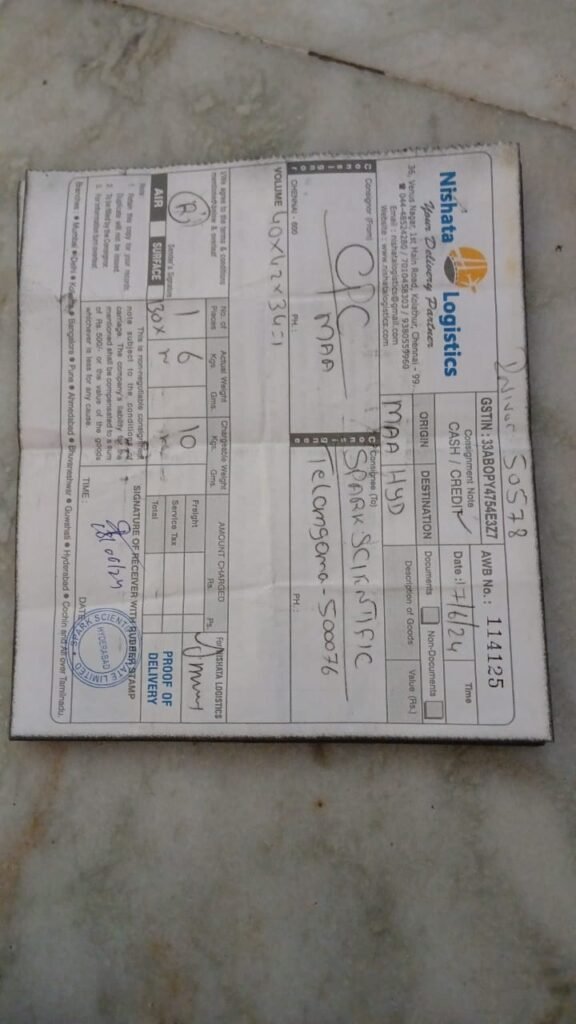 50578
Nishata Logistics
Your Delivery Partner
36, Venus Nagar, 1st Main Road, Kolathur, Chennai - 99.
☎ 044-48524280 / 7010458303 / 9380559960
Email : nishatalogistics@gmail.com
Website : www.nishatalogistics.com
GSTIN : 33ABOPY4754E3Z7
AWB No. : 114125
Consignment Note
CASH / CREDIT
Date : 17/6/24
Time
ORIGIN
DESTINATION
Documents
Non-Documents
MAA
HYD
Description of Goods
Value (Rs.)
Consignor
Consignor (From)
CPC
MAA
CHENNAI - 600
PH. :
Consignee
Consignee (To)
SPARK SCIENTIFIC
Telangana - 500076
PH. :
VOLUME 40x42x34=1
I/We agree to the terms & conditions
mentioned overleaf
Sender's Signature
AIR
SURFACE
No. of Places
Actual Weight
Kgs. Gms.
Chargeable Weight
Kgs. Gms.
AMOUNT CHARGED
Rs. Ps.
1
6
10
Box
Freight
Service Tax
Total
For NISHATA LOGISTICS
PROOF OF DELIVERY
Note
1. Retain this copy for your records
Duplicate will not be issued.
2. To be filled by the Consignor.
3. For information turn overleaf.
This is non-negotiable consignment
note subject to the conditions of
carriage. The company's liability for the
mentioned shall be compensated to a sum
of Rs. 500/- or the value of the goods
whichever is less for any cause.
SIGNATURE OF RECEIVER WITH RUBBER STAMP
TIME :
DATE
HYDERABAD
Branches : ● Mumbai ● Delhi ● Kolkata ● Bangalore ● Pune ● Ahmedabad ● Bhuvaneshwar ● Guwahati ● Hyderabad ● Cochin and All over Tamilnadu.